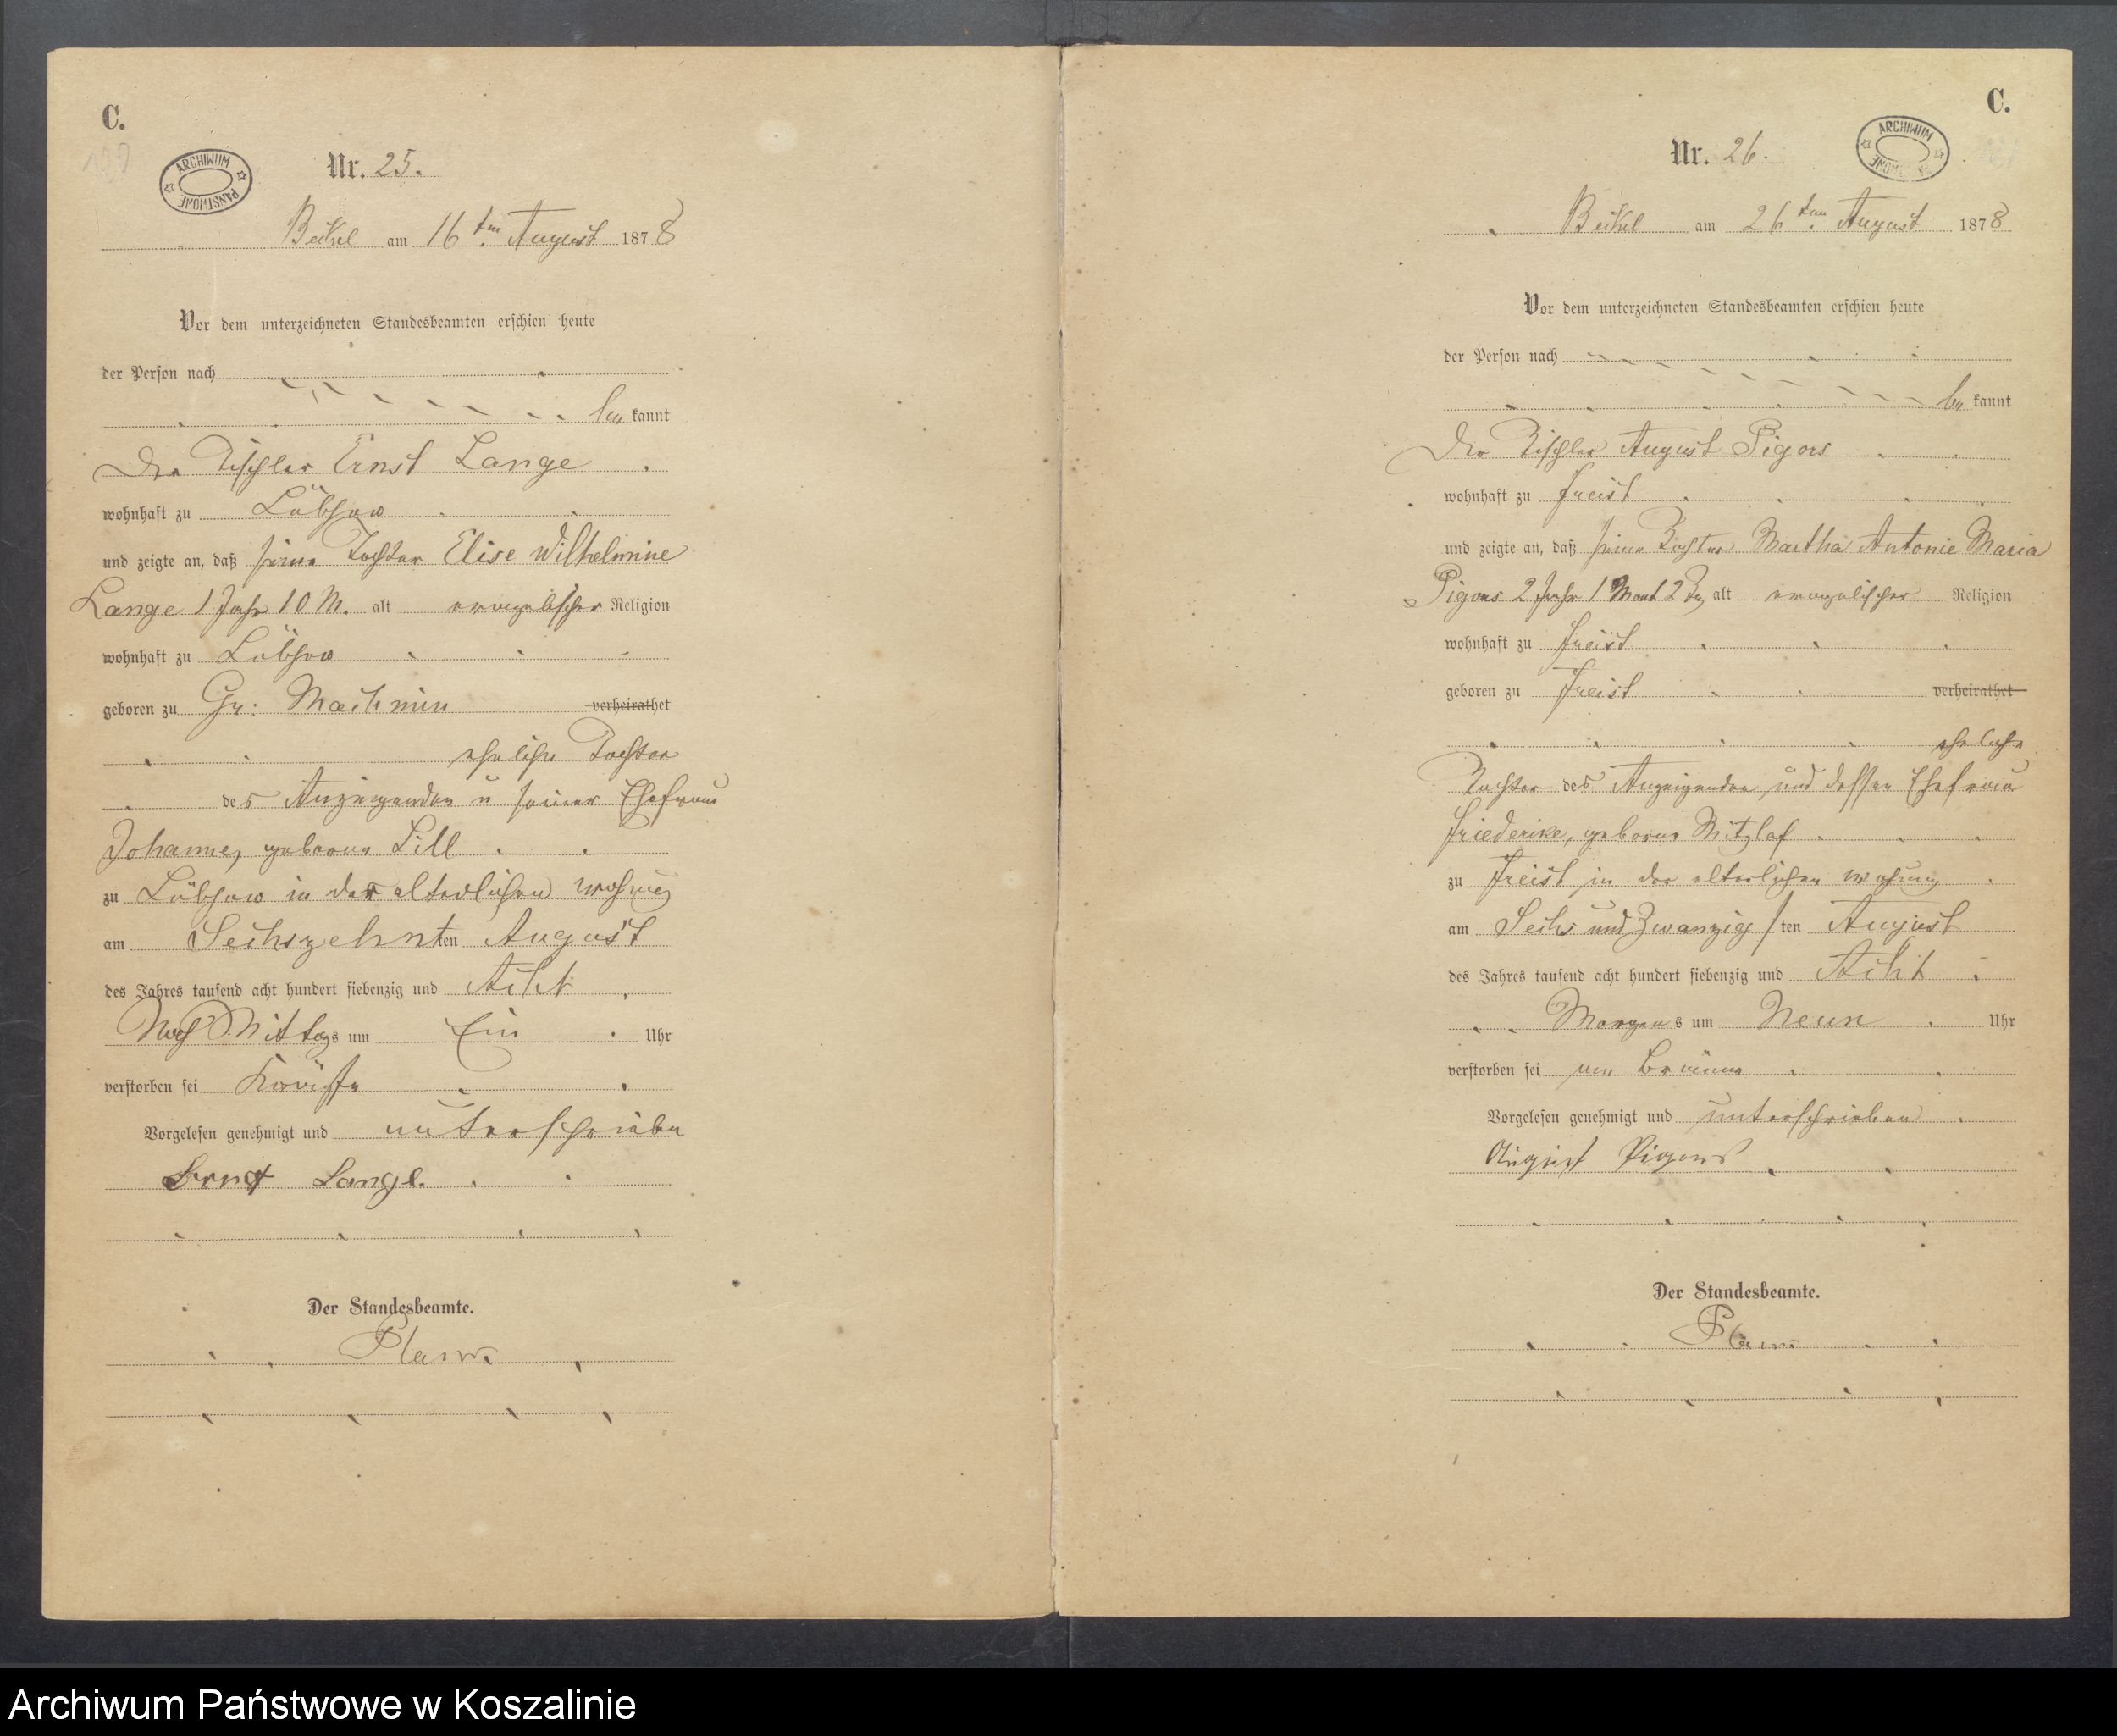 C.
ARCHIWUM PAŃSTWOWE
Nr. 25.
Beckel am 16ten August 1878
Vor dem unterzeichneten Standesbeamten erschien heute
der Person nach
be kannt
Der Tischler Ernst Lange
wohnhaft zu Lübzow
und zeigte an, daß seine Tochter Elise Wilhelmine
Lange 1 Jahr 10 M. alt evangelischer Religion
wohnhaft zu Lübzow
geboren zu Gr. Machmin verheirathet
eheliche Tochter
des Anzeigenden u seiner Ehefrau
Johanne, geborene Lill
zu Lübzow in der elterlichen Wohnung
am Sechszehnten August
des Jahres tausend acht hundert siebenzig und Acht
Nach Mittags um Ein Uhr
verstorben sei
Vorgelesen genehmigt und unterschrieben
Ernst Lange.
Der Standesbeamte.
C.
ARCHIWUM
Nr. 26.
Beckel am 26ten August 1878
Vor dem unterzeichneten Standesbeamten erschien heute
der Person nach
be kannt
Der Tischler August Pigors
wohnhaft zu Freist
und zeigte an, daß seine Tochter Martha Antonie Maria
Pigors 2 Jahr 1 Monat 2 Tg alt evangelischer Religion
wohnhaft zu Freist
geboren zu Freist verheirathet
eheliche
Tochter des Anzeigenden und dessen Ehefrau
Friederike, geborene Mitzlaf
zu Freist in der elterlichen Wohnung
am Sechs und Zwanzigsten August
des Jahres tausend acht hundert siebenzig und Acht
Morgens um Neun Uhr
verstorben sei an Bräune
Vorgelesen genehmigt und unterschrieben
August Pigors
Der Standesbeamte.
Archiwum Państwowe w Koszalinie